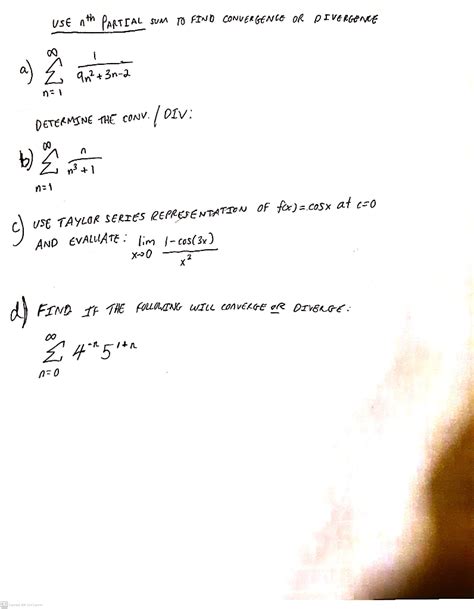 USE nth PARTIAL SUM TO FIND CONVERGENCE OR DIVERGENCE
a) ∞ Σ n=1 1 / 9n²+3n-2
DETERMINE THE CONV. / DIV:
b) ∞ Σ n=1 n / n³+1
c) USE TAYLOR SERIES REPRESENTATION OF f(x)=cosx at c=0
AND EVALUATE: lim x→0 1-cos(3x) / x²
d) FIND IF THE FOLLOWING WILL CONVERGE OR DIVERGE:
∞ Σ n=0 4⁻ⁿ 5¹⁺ⁿ